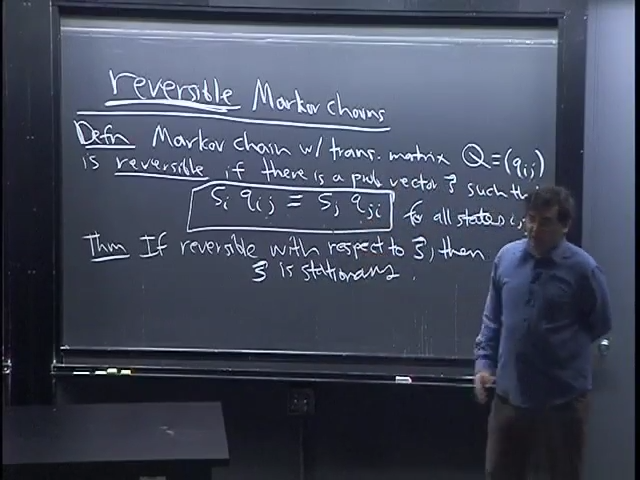 reversible Markov chains
Defn Markov chain w/ trans. matrix Q = (q_ij)
is reversible if there is a prob. vector s⃗ such th
s_i q_ij = s_j q_ji for all states i,j
Thm If reversible with respect to s⃗, then
s⃗ is stationary.